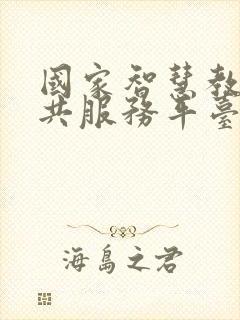 國家智慧教
共服務平臺
海島之君